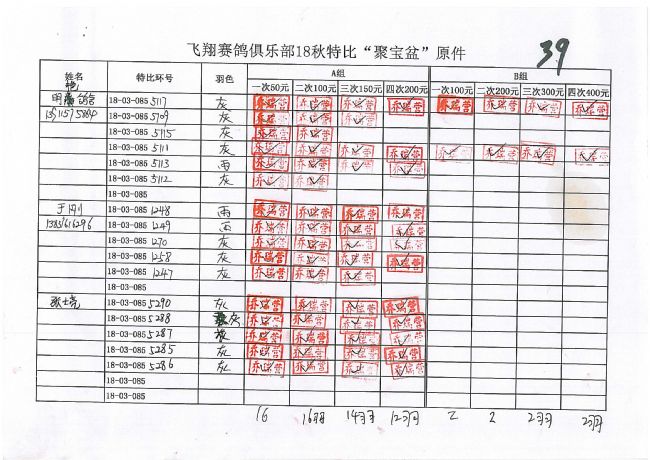 飞翔赛鸽俱乐部18秋特比“聚宝盆”原件
39
姓名 特比环号 羽色 A组 B组
一次50元 二次100元 三次150元 四次200元 一次100元 二次200元 三次300元 四次400元
18-03-085 5117 灰 乔瑞营 乔瑞营 乔瑞营 乔瑞营 乔瑞营 乔瑞营 乔瑞营 乔瑞营
18-03-085 5109 灰 乔瑞营 乔瑞营 乔瑞营
18-03-085 5115 灰 乔瑞营 乔瑞营
18-03-085 5111 灰 乔瑞营 乔瑞营 乔瑞营 乔瑞营 乔瑞营 乔瑞营 乔瑞营 乔瑞营
18-03-085 5113 雨 乔瑞营 乔瑞营 乔瑞营 乔瑞营
18-03-085 5112 灰 乔瑞营 乔瑞营
18-03-085
于刚 18-03-085 1248 雨 乔瑞营 乔瑞营 乔瑞营 乔瑞营
18-03-085 1249 雨 乔瑞营 乔瑞营 乔瑞营 乔瑞营
18-03-085 1270 灰 乔瑞营 乔瑞营 乔瑞营 乔瑞营
18-03-085 1258 灰 乔瑞营 乔瑞营 乔瑞营 乔瑞营
18-03-085 1247 灰 乔瑞营 乔瑞营 乔瑞营
18-03-085
张士亮 18-03-085 5290 灰 乔瑞营 乔瑞营 乔瑞营 乔瑞营
18-03-085 5288 灰 乔瑞营 乔瑞营 乔瑞营 乔瑞营
18-03-085 5287 乔瑞营 乔瑞营 乔瑞营 乔瑞营
18-03-085 5285 灰 乔瑞营 乔瑞营 乔瑞营 乔瑞营
18-03-085 5286 灰 乔瑞营 乔瑞营 乔瑞营 乔瑞营
18-03-085
18-03-085
16 16羽 14羽 12羽 2 2 2羽 2羽